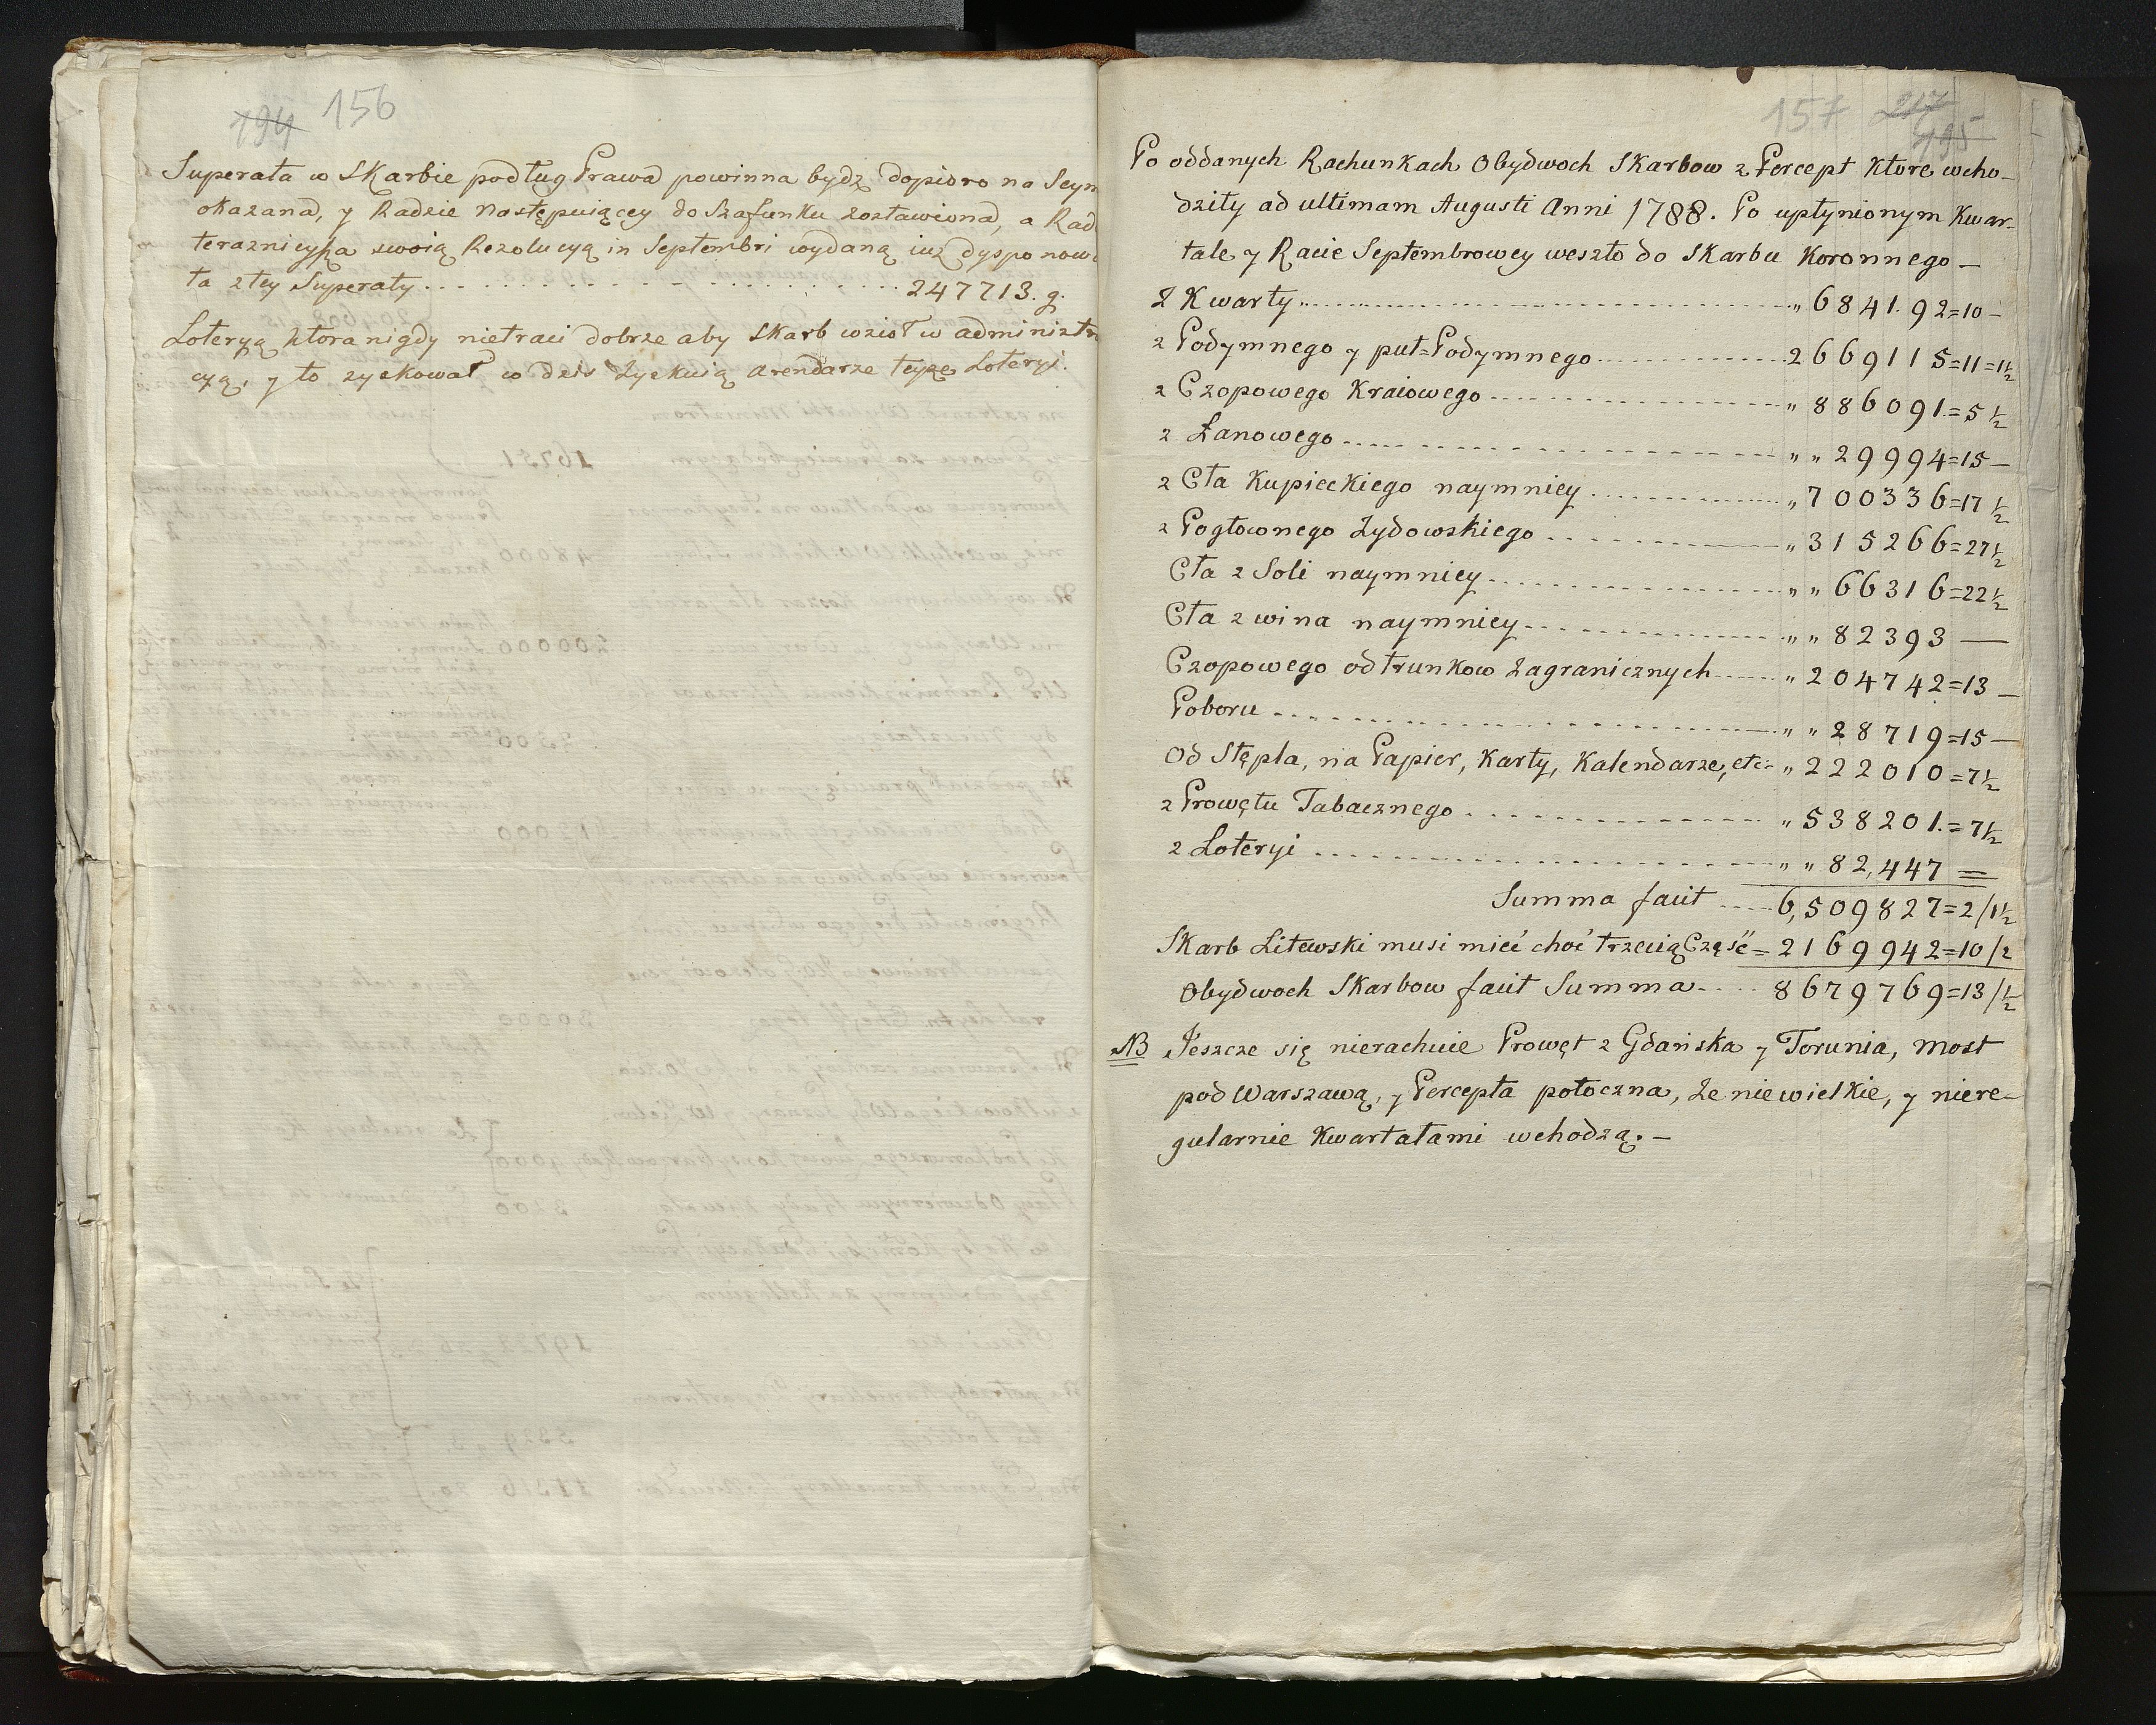 194 156
Superata w Skarbie podług Prawa powinna bydz dopioro na Seym
okazana, y Radzie Następuiącey do Szafunku zostawiona, a Rad
teraznieysza swoią Rezolucyą in Septembri wydaną iuż dysponowa
ła z tey Superaty 247713. g.
Loteryą ktora nigdy nietraci dobrze aby Skarb wzioł w administra
cyą, y to zyskował co dzis Zyskuią arendarze teyże Loteryi.
157 217
195
Po oddanych Rachunkach Obydwoch Skarbow z Percept ktore wcho-
dziły ad ultimam Augusti Anni 1788. Po upłynionym Kwar-
tale y Racie Septembrowey weszło do Skarbu Koronnego -
Z Kwarty „ 684192=10-
z Podymnego y puł=Podymnego 2669115=11=1½
z Czopowego Kraiowego „ 886091=5½
z Łanowego „ „ 29994=15-
z Cła Kupieckiego naymniey „ 700336=17½
z Pogłownego Zydowskiego „ 315266=27½
Cła z Soli naymniey „ „ 66316=22½
Cła z wina naymniey „ „ 82393 —
Czopowego od trunkow Zagranicznych „ 204742=13 -
Poboru „ „ 28719=15 -
Od Stępla, na Papier, Karty, Kalendarze, etc= „ 222010=7½
z Prowętu Tabacznego „ 538201.=7½
z Loteryi „ „ 82,447 =
Summa facit 6,509827=2/1½
Skarb Litewski musi mieć choć trzecią Część = 2169942=10/2
Obydwoch Skarbow facit Summa 8679769=13/½
NB Jeszcze się nierachuie Prowęt z Gdańska y Torunia, most
pod Warszawą, y Percepta potoczna, że niewielkie, y niere-
gularnie Kwartałami wchodzą. -